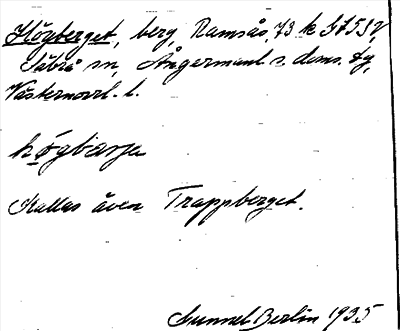 Högberget, berg Ramsås, 73 k St5SV,
Säbrå sn, Ångermanl. s. doms. dy,
Västernorrl. l.
högbærje
Kallas även Trappberget.
Gunnel Berlin 1935